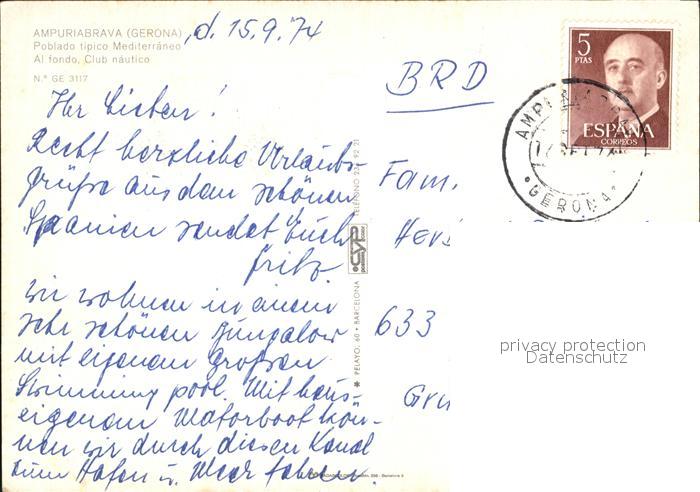 AMPURIABRAVA (GERONA)
Poblado típico Mediterráneo
Al fondo, Club náutico
N.º GE 3117
, d. 15.9.74
Ihr Lieben!
Recht herzliche Urlaubs-
grüße aus dem schönen
Spanien sendet Euch
Fritz.
Wir wohnen in einem
sehr schönen Bungalow
mit eigenem großen
Swimming pool. Mit haus-
eigenem Motorboot kön-
nen wir durch diesen Kanal
zum Hafen u. Meer fahren.
TELEFONO
PELAYO, 60 • BARCELONA
BRD
Fam.
633
5
PTAS
ESPAÑA
CORREOS
GERONA
privacy protection
Datenschutz